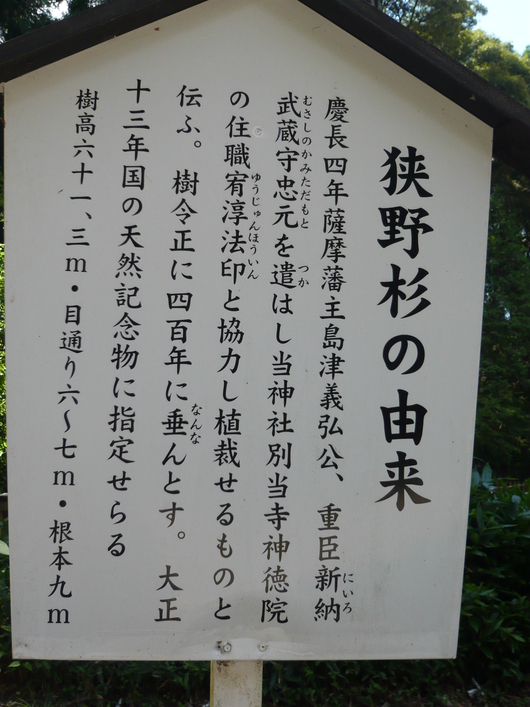 狭野杉の由来
慶長四年薩摩藩主島津義弘公、重臣新納
にいろ
武蔵守忠元を遣はし当神社別当寺神徳院
むさしのかみただもと
つか
の住職宥淳法印と協力し植裁せるものと
ゆうじゅんほういん
伝ふ。樹令正に四百年に垂んとす。大正
なんな
十三年国の天然記念物に指定せらる
樹高六十一、三m・目通り六〜七m・根本九m